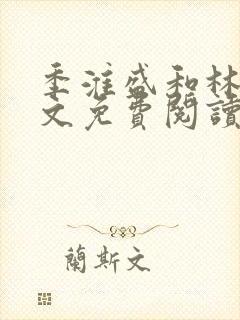 季淮盛和林
文免費閱讀
蘭斯文